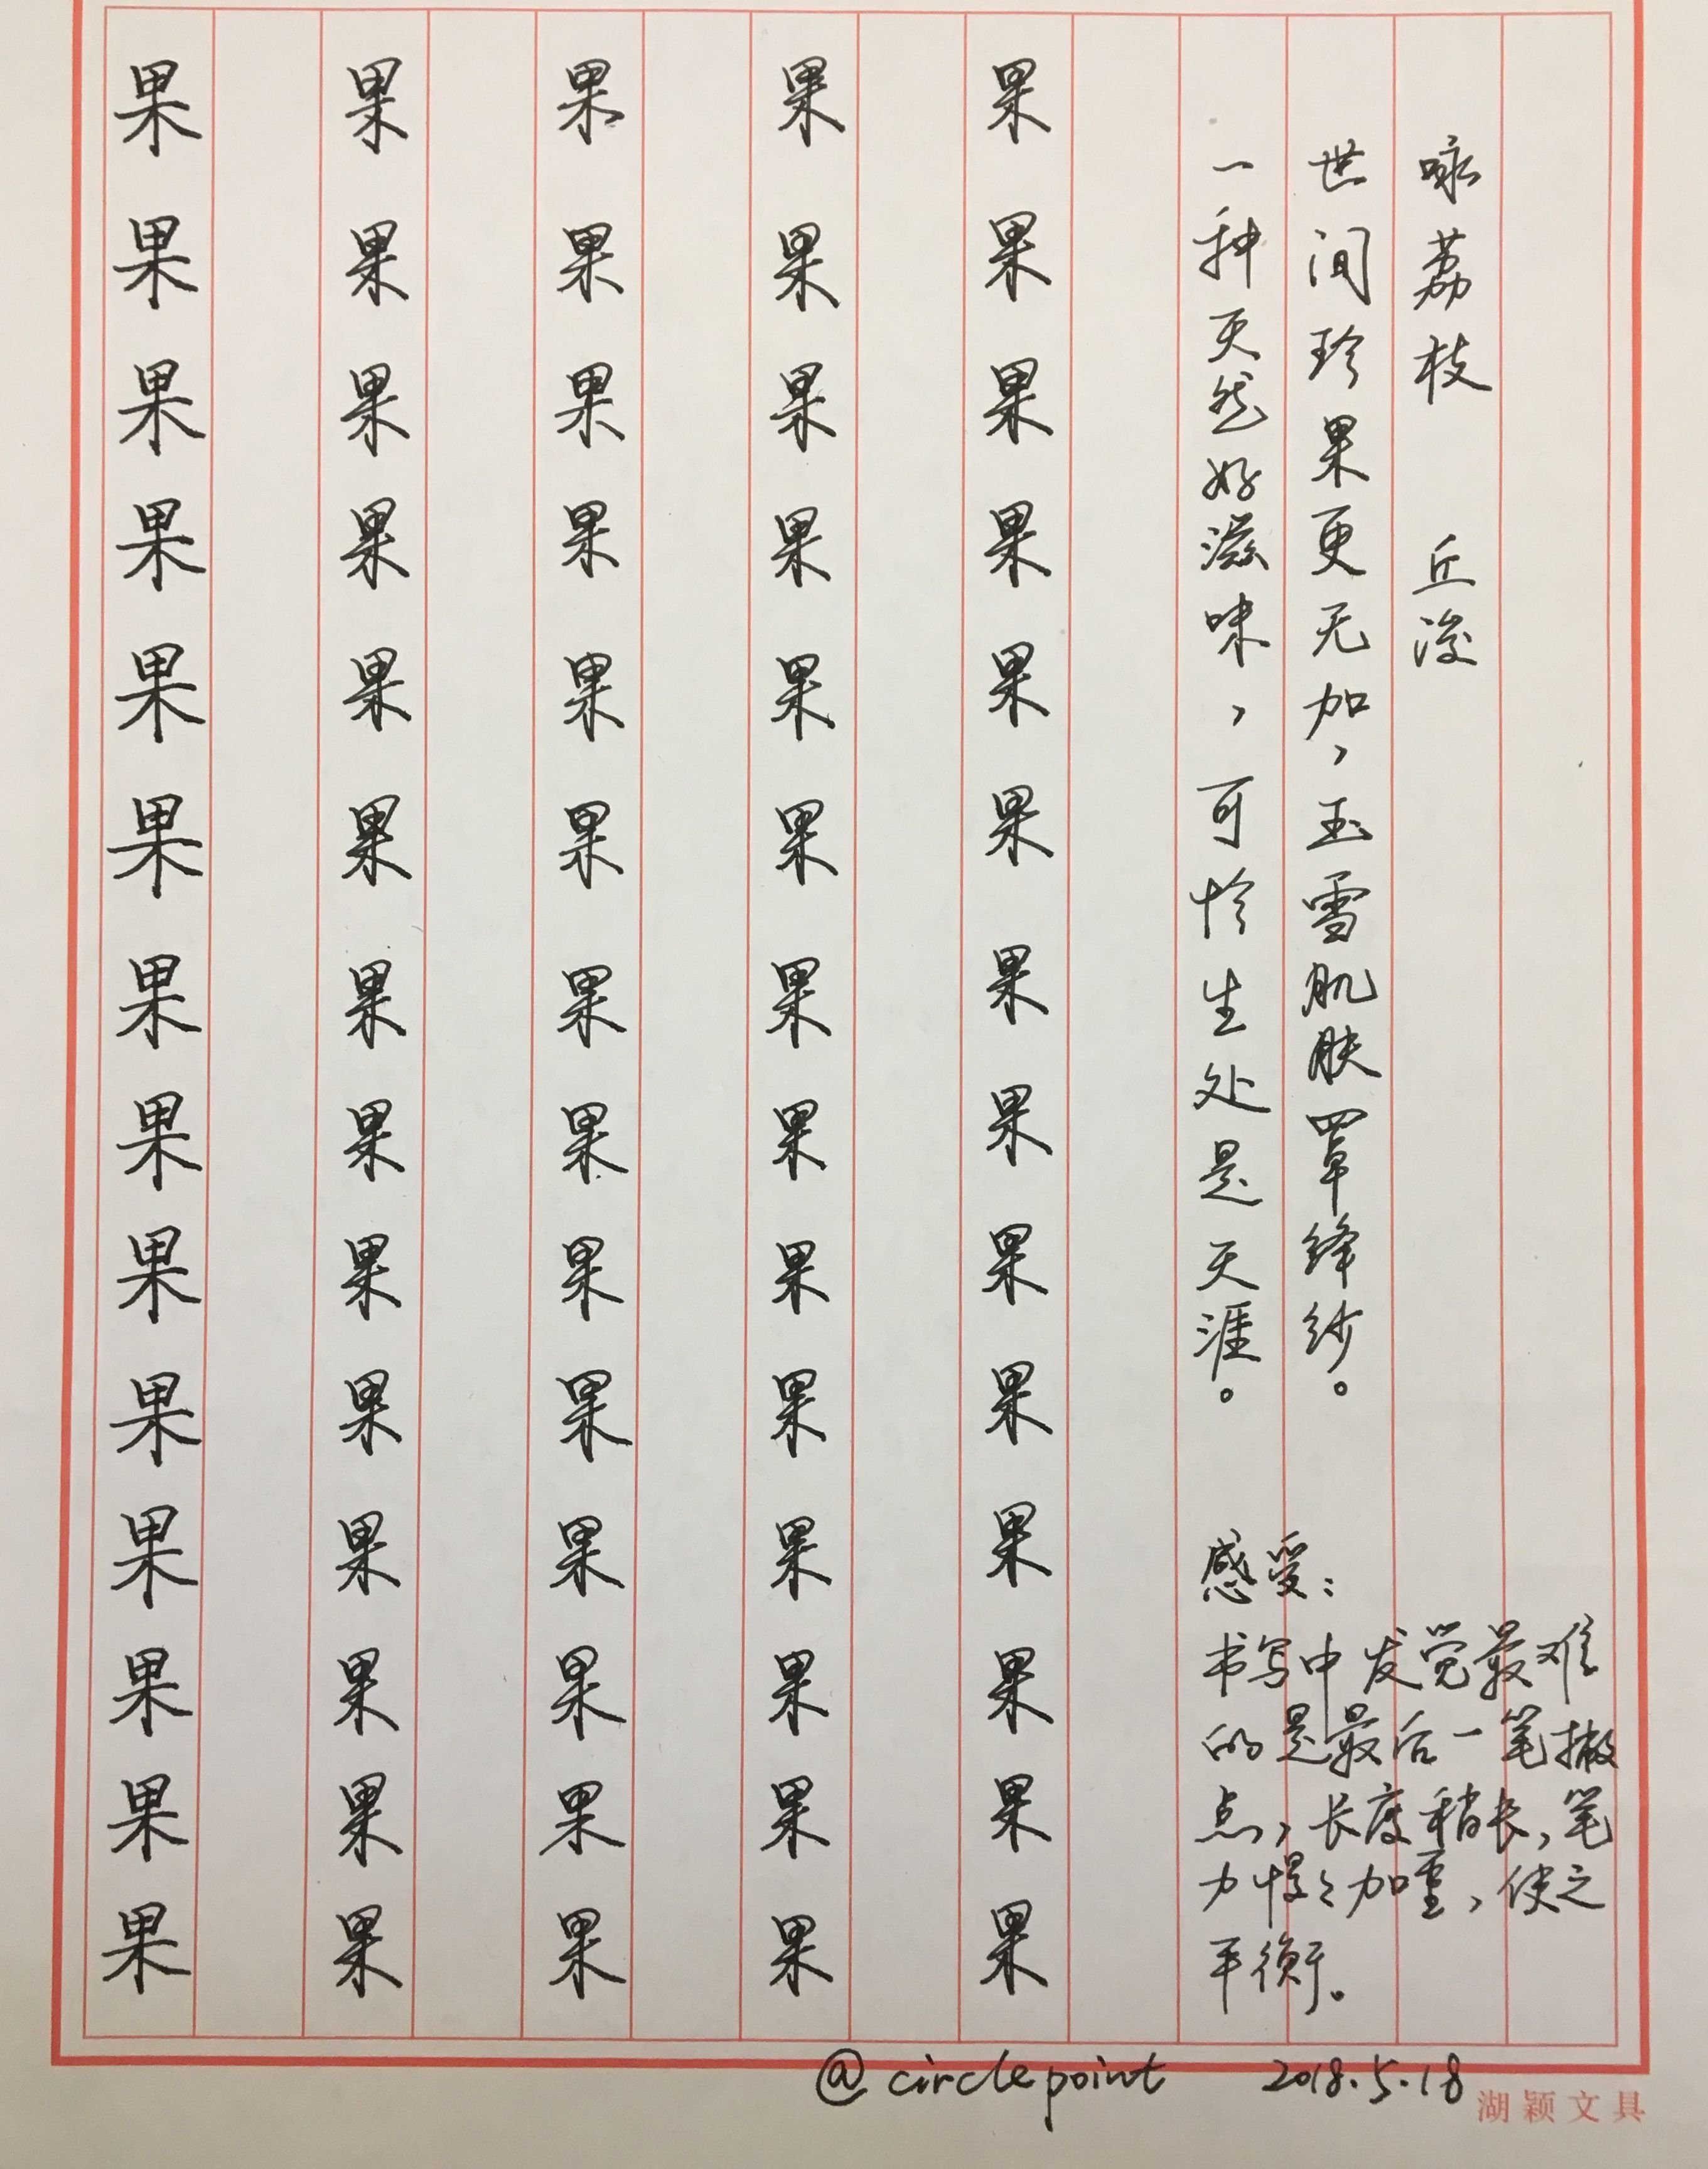 咏荔枝 丘浚
世间珍果更无加，玉雪肌肤罩绛纱。
一种天然好滋味，可怜生处是天涯。
感受：
书写中发觉最难
的是最后一笔撇
点，长度稍长，笔
力慢々加重，使之
平衡。
果果果果果果果果果果果果果果
果果果果果果果果果果果果果果
果果果果果果果果果果果果果果
果果果果果果果果果果果果果果
果果果果果果果果果果果果果果
@circlepoint 2018.5.18
湖颖文具